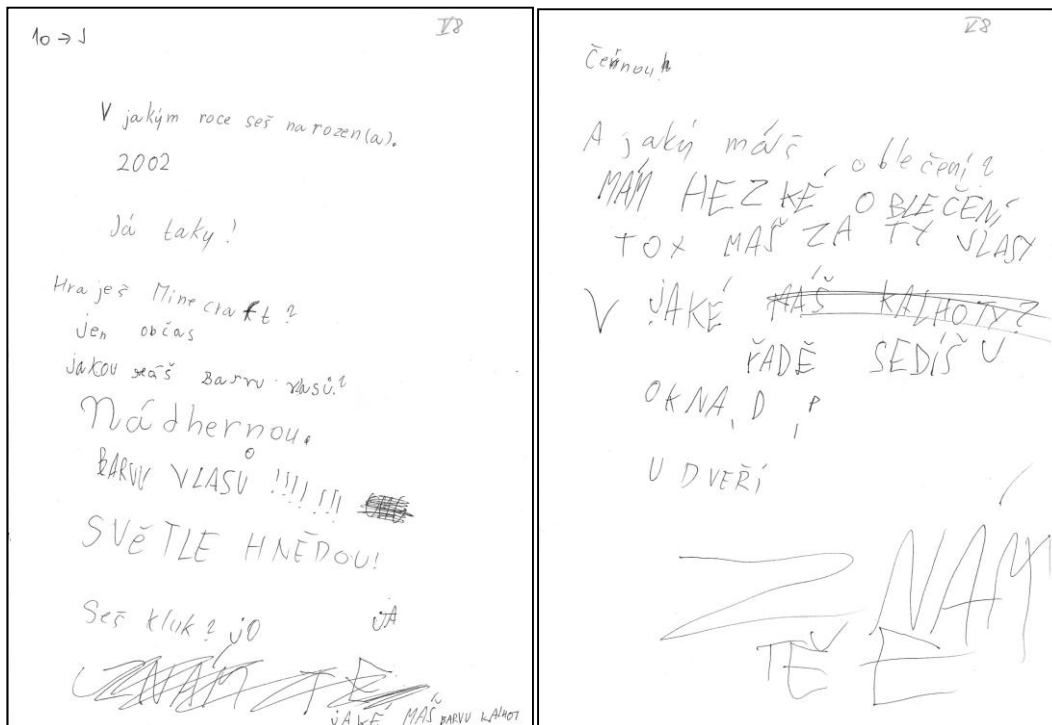 10 → J
V8
V jakým roce seš narozen(a).
2002
Já taky!
Hraješ Minecraft?
jen občas
jakou máš Barvu vlasů?
Nádhernou.
BARVU VLASŮ !!!!!!!
SVěTLE HNĚDOU!
Seš kluk? jO
JA
ZNÁM TĚ
JAKÉ MÁŠ BARVU KALHOT
V8
Černou
A jaký máš oblečení?
MÁM HEZKÉ OBLEČENÍ
MAŠ ZA TY VLASY
V JAKÉ MÁŠ KALHOTY?
ŘADĚ SEDÍŠ U
OKNA, D, P
U DVEŘÍ
ZNÁM
TĚ